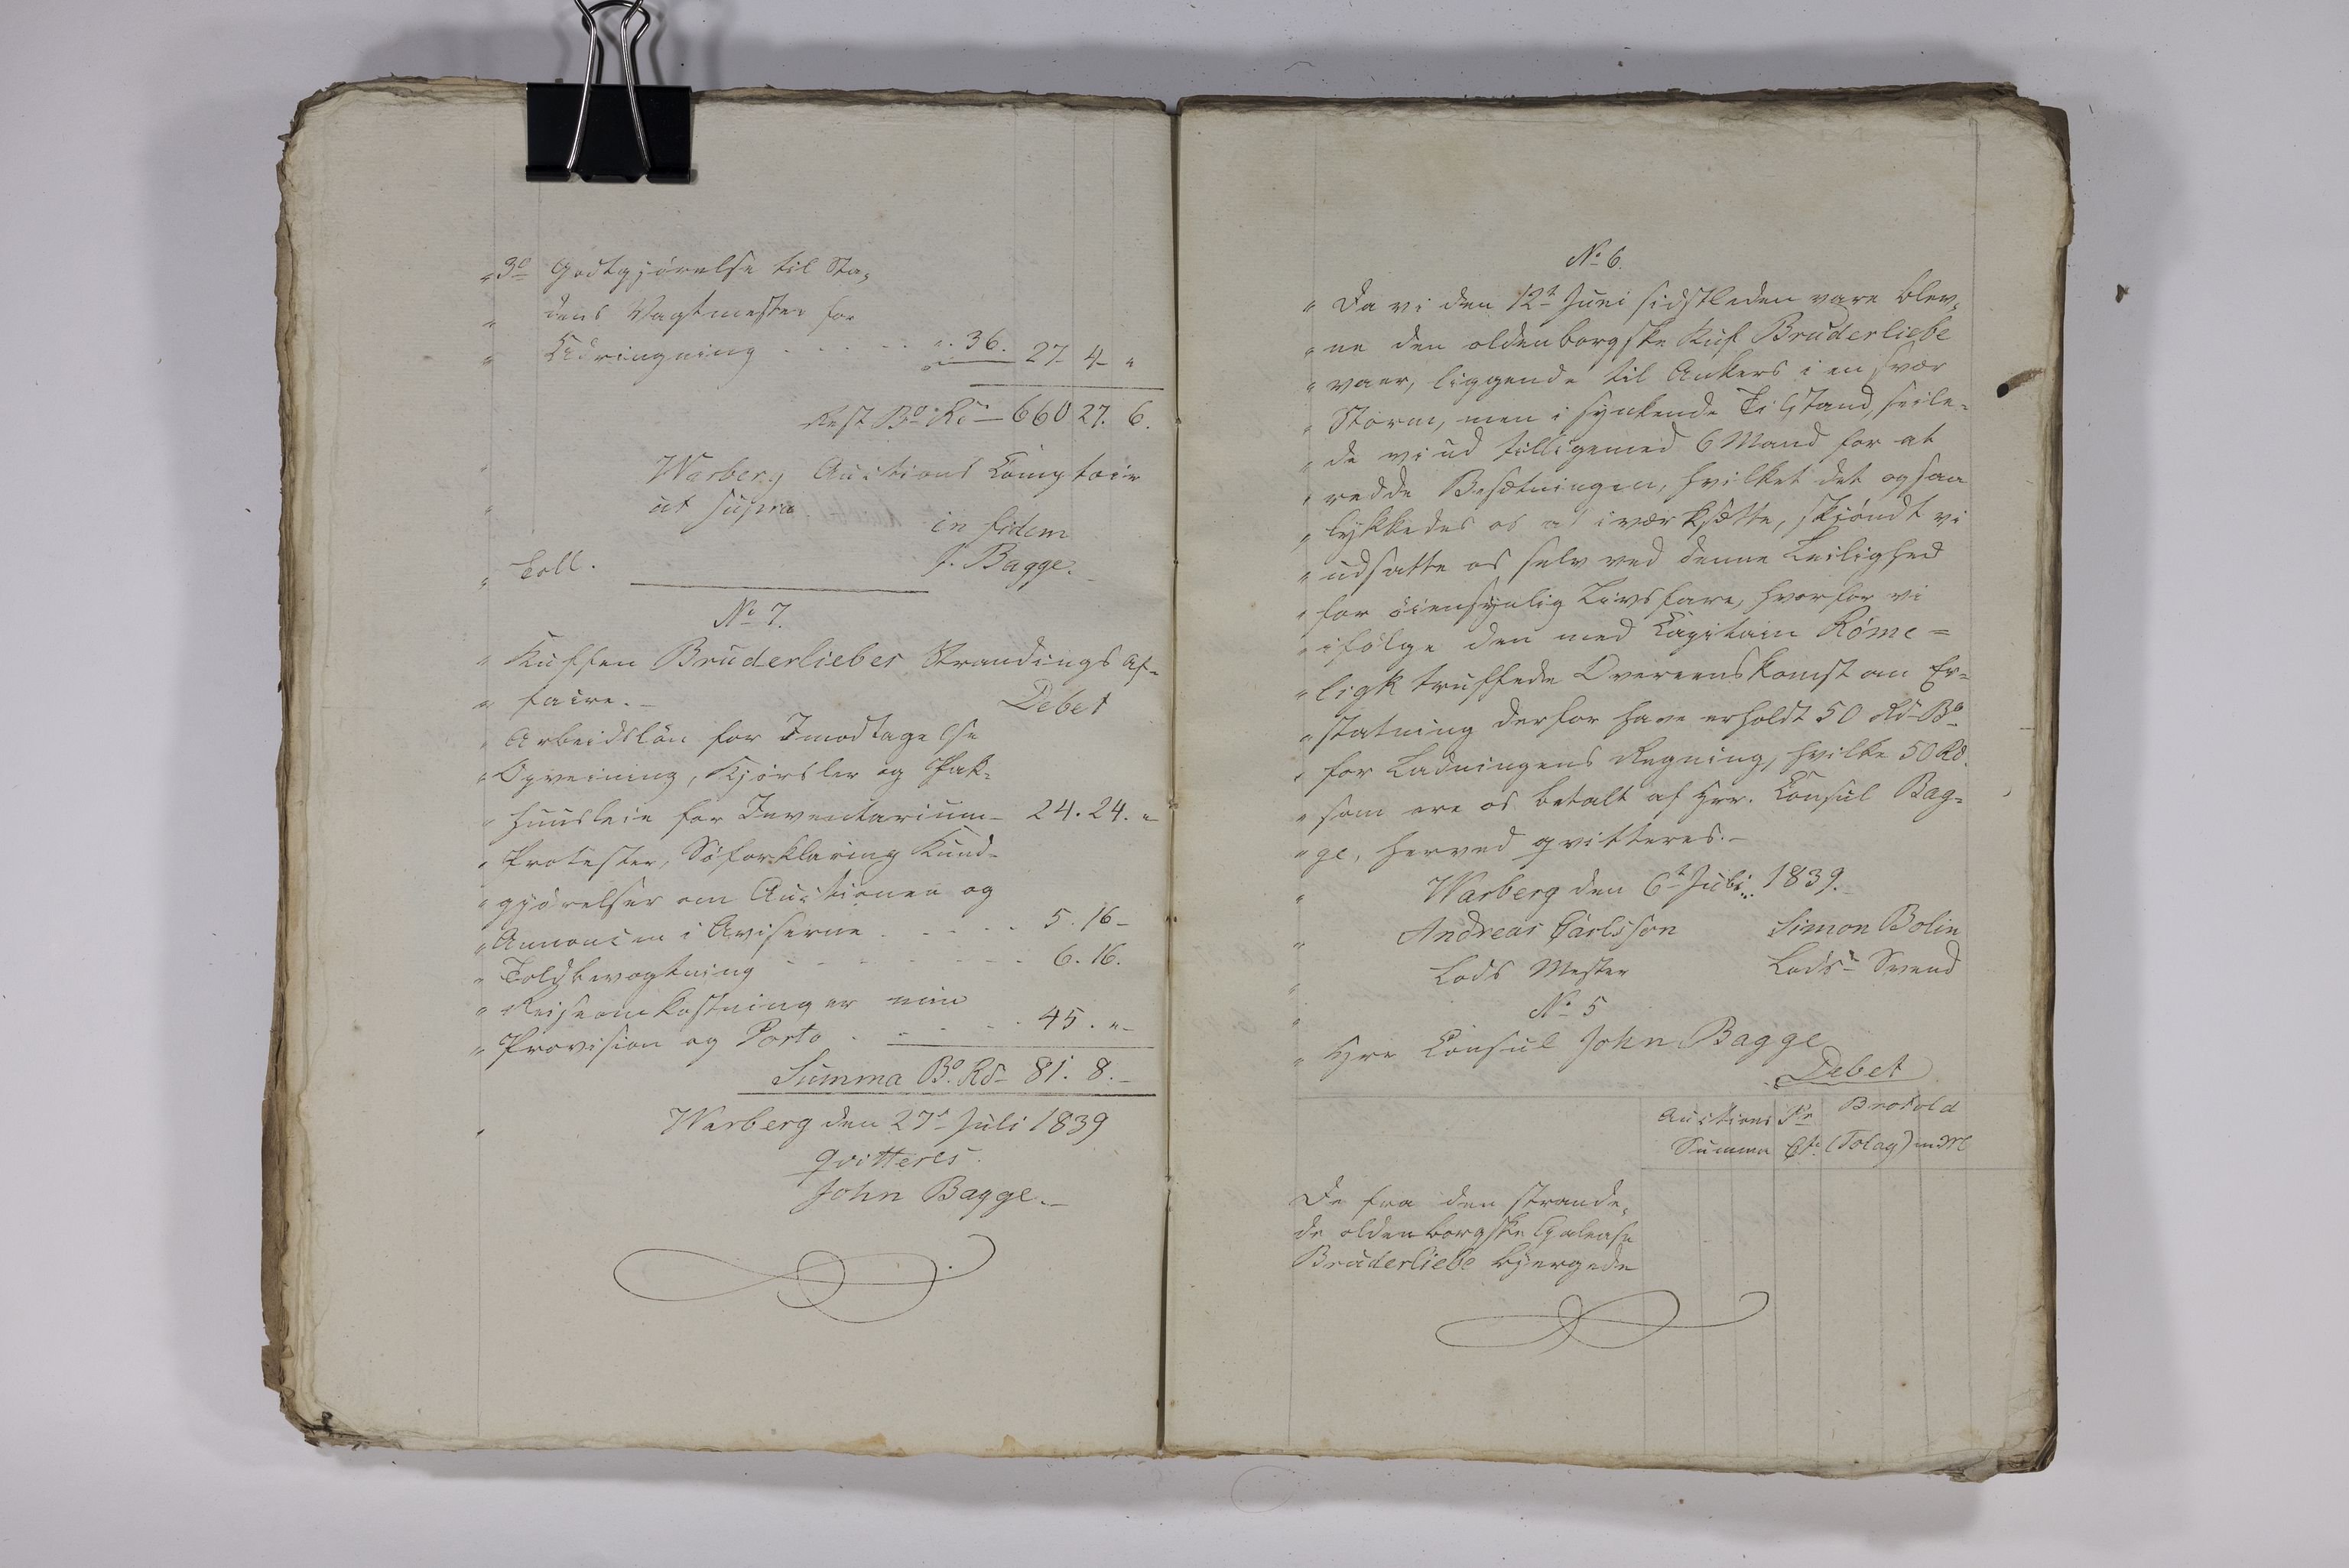 „ 3º Godtgjørelse til Sta„
„ dens Vagtmester for
„ Udringning . . . . . „. 36. 27 4 „
Rest Bº Rd — 660 27. 6.
„ Warberg Auctions Comptoir
„ ut supra
in fidem
„ Coll. J. Bagge.
No 7.
„ Kuffen Bruderliebes Strandings Af-
„ faire. – Debet
„ Arbeidslön for Imodtagelse
„ Opveining, Kjörsler og Pak-
„ huusleie for Inventarium – 24. 24. „
„ Protester, Söforklaring Kund-
„ gjörelser om Auctionen og
„ Annoncen i Aviserne . . . . . 5. 16 –
„ Toldbevogtning - - - - - - - 6. 16.
„ Reiseomkostninger min
„ Provision og Porto . - - - . 45. „ –
Summa Bº. Rd – 81. 8. –
„ Warberg den 27t Juli 1839
qvitteres.
John Bagge. –
No 6.
„ Da vi den 12t Juni sidstleden vare blev„
„ ne den oldenborgske Kuf Bruderliebe
„ vaer, liggende til Ankers i en svær
„ Storm, men i synkende Tilstand, seile-
„ de vi ud tilligemed 6 Mand for at
„ redde Besætningen, hvilket det ogsaa
„ lykkedes os at iværksætte, skjöndt vi
„ udsatte os selv ved denne Leilighed
„ for öiensynlig Livsfare, hvorfor vi
„ ifölge den med Capitain Röme=
„ ligk truffede Overeenskomst om Er=
„ statning derfor have erholdt 50 Rd Bº
„ for Ladningens Regning, hvilke 50 Rd.
„ som ere os betalt af Hrr. Consul Bag=
„ ge, herved qvitteres. –
„ Warberg den 6t Juli 1839.
„ Andreas Carlsson Simon Bolin
„ Lods Mester Lods Svend
„ No 5
„ Hrr Consul John Bagge
Debet
Auctions Pr
Summa Ct. (Tolag) m m
De fra den strande„
de oldenborgske Galease
Bruderliebe bjergede